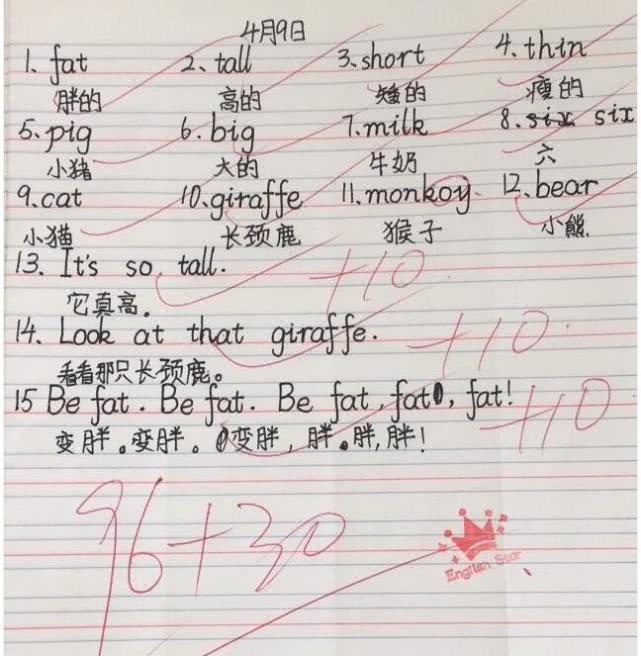 4月9日
1. fat 2、tall 3、short 4. thin
胖的 高的 矮的 瘦的
5. pig 6. big 7. milk 8. six six
小猪 大的 牛奶 六
9. cat 10. giraffe 11. monkoy 12. bear
小猫 长颈鹿 猴子 小熊
13. It's so tall. +10
它真高。
14. Look at that giraffe. +10
看看那只长颈鹿。
15 Be fat. Be fat. Be fat, fat, fat! +10
变胖。变胖。变胖,胖。胖,胖!
96+30
English Star